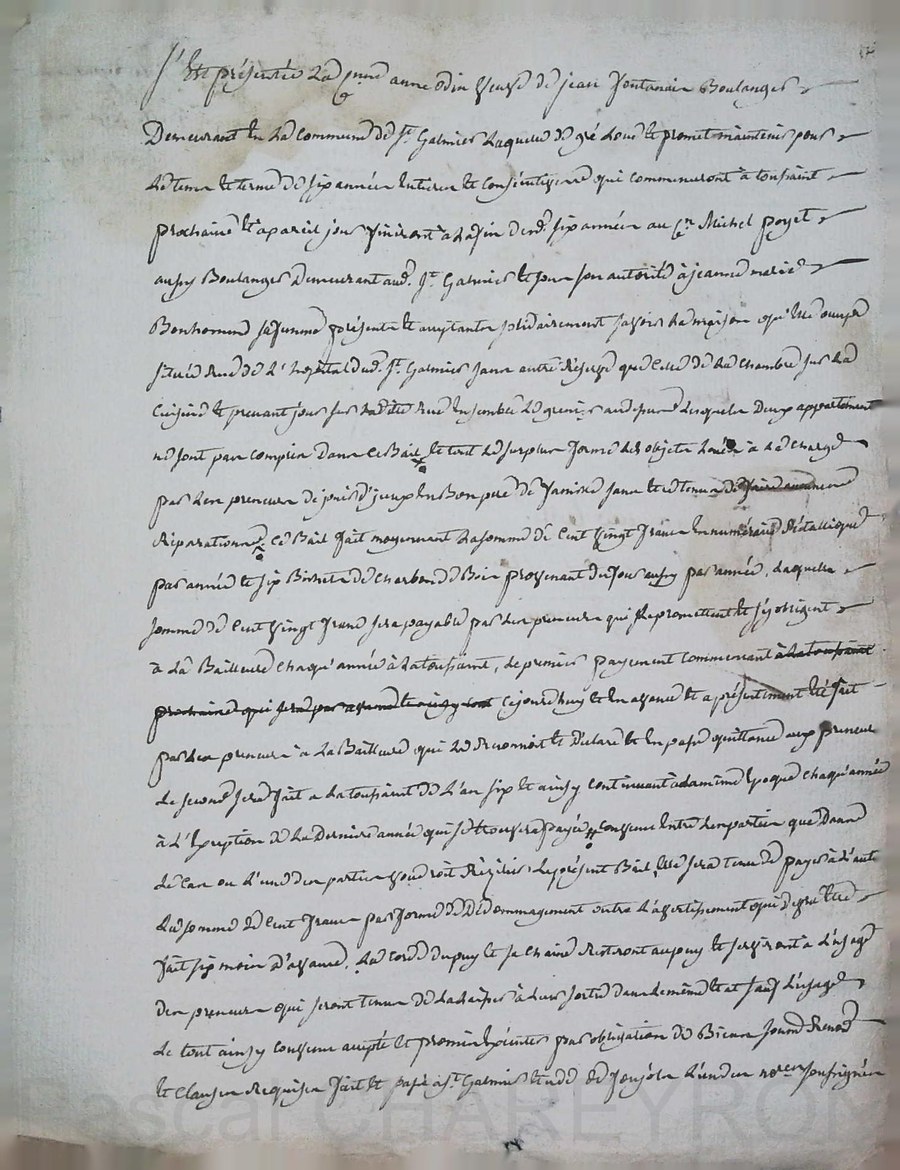 S'est présentée la cnne anne odin veuve de jean fontanais Boulanger
Demeurant en la commune de St Galmier laquelle de gré loue et promet maintenir pour
le tems et terme de six années entieres et consécutives qui commenceront à toussaint
prochaine et à pareil jour finiront à la fin desd. six années au cen Michel poyet
aussy Boulanger Demeurant aud. St Galmier et sous son autorité à jeanne marie
Bonhomme sa femme présents et acceptants solidairement savoir la maison qu'elle occupe
située rue de l'hopital dud. St Galmier sans autre réserve que celle de la chambre sur la
cuisine et prenant jour sur ladite rue ensemble le grenier audessus lesquels Deux appartement
ne sont pas compris dans ce Bail et tout le surplus forme les objets loués à la charge
par les preneurs de jouir d'yceux en Bon pere de famille sans etre tenus de faire aucune
réparations, ce Bail fait moyennant la somme de cent vingt francs en numéraire métallique
par année et six Bennes de charbon de Bois provenant du four aussy par année, laquelle
somme de cent vingt francs sera payable par les preneurs qui le promettent et s'y obligent
à la Bailleure chaqu'année à la toussaint, le premier payement commencant à la toussaint
prochaine qui sera par avance et ainsy cejourd'huy et en avance et a présentement été fait
par les preneurs à la Bailleure qui le reconnoit et déclare et en passe quittance aux preneurs
le second sera fait a la toussaint de l'an six et ainsy continuant à la meme époque chaqu'année
à l'exception de la derniere année qui se trouvera payée convenu entre les parties que dans
le cas ou l'une des parties voudroit résilier le présent Bail elle sera tenue de payer à l'autre
la somme de cent francs par forme de dédommagement outre l'avertissement qui devra etre
fait six mois d'avance. La corde du puy et sa chaine resteront au puy et serviront à l'usage
des preneurs qui seront tenus de la laisser à leur sortie dans le meme etat sauf l'usage
le tout ainsy convenu accepté et promis exécuter par obligation de Biens soumis renon
et clauses requises fait et passé à St Galmier etude de l'un des nores soussignés
Pascal CHAREYRON